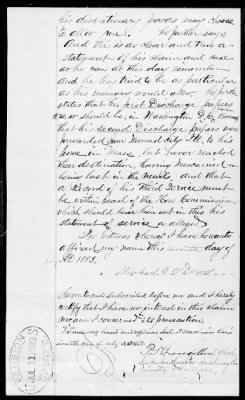 his discretionary powers may choose
to allow me. He further says
And this is as clear and true a
statement of his claim and case
as he can at this day remember
and he has tried to be as particular
as his memory would allow. He further
states that his first Discharge papers
are or should be, in Washington D.C.,
that his second Discharge papers were
forwarded from Mound City Ill. to his
home in but never reached
their destination, having
being lost in the Mails, and that
a Record of his third service must
be within reach of the Hon. Commissioner,
which should bear him out in this his
statement of service as alleged.
In witness whereof I have hereunto
affixed my name this day of
A.D. 1883.
Michael O'Dowd
Sworn to and Subscribed before me and I hereby
certify that I have no interest in this claim
nor am I concerned in its prosecution.
Witness my hand and official seal
day of July 1883.
PENSION
JUL 31 1883